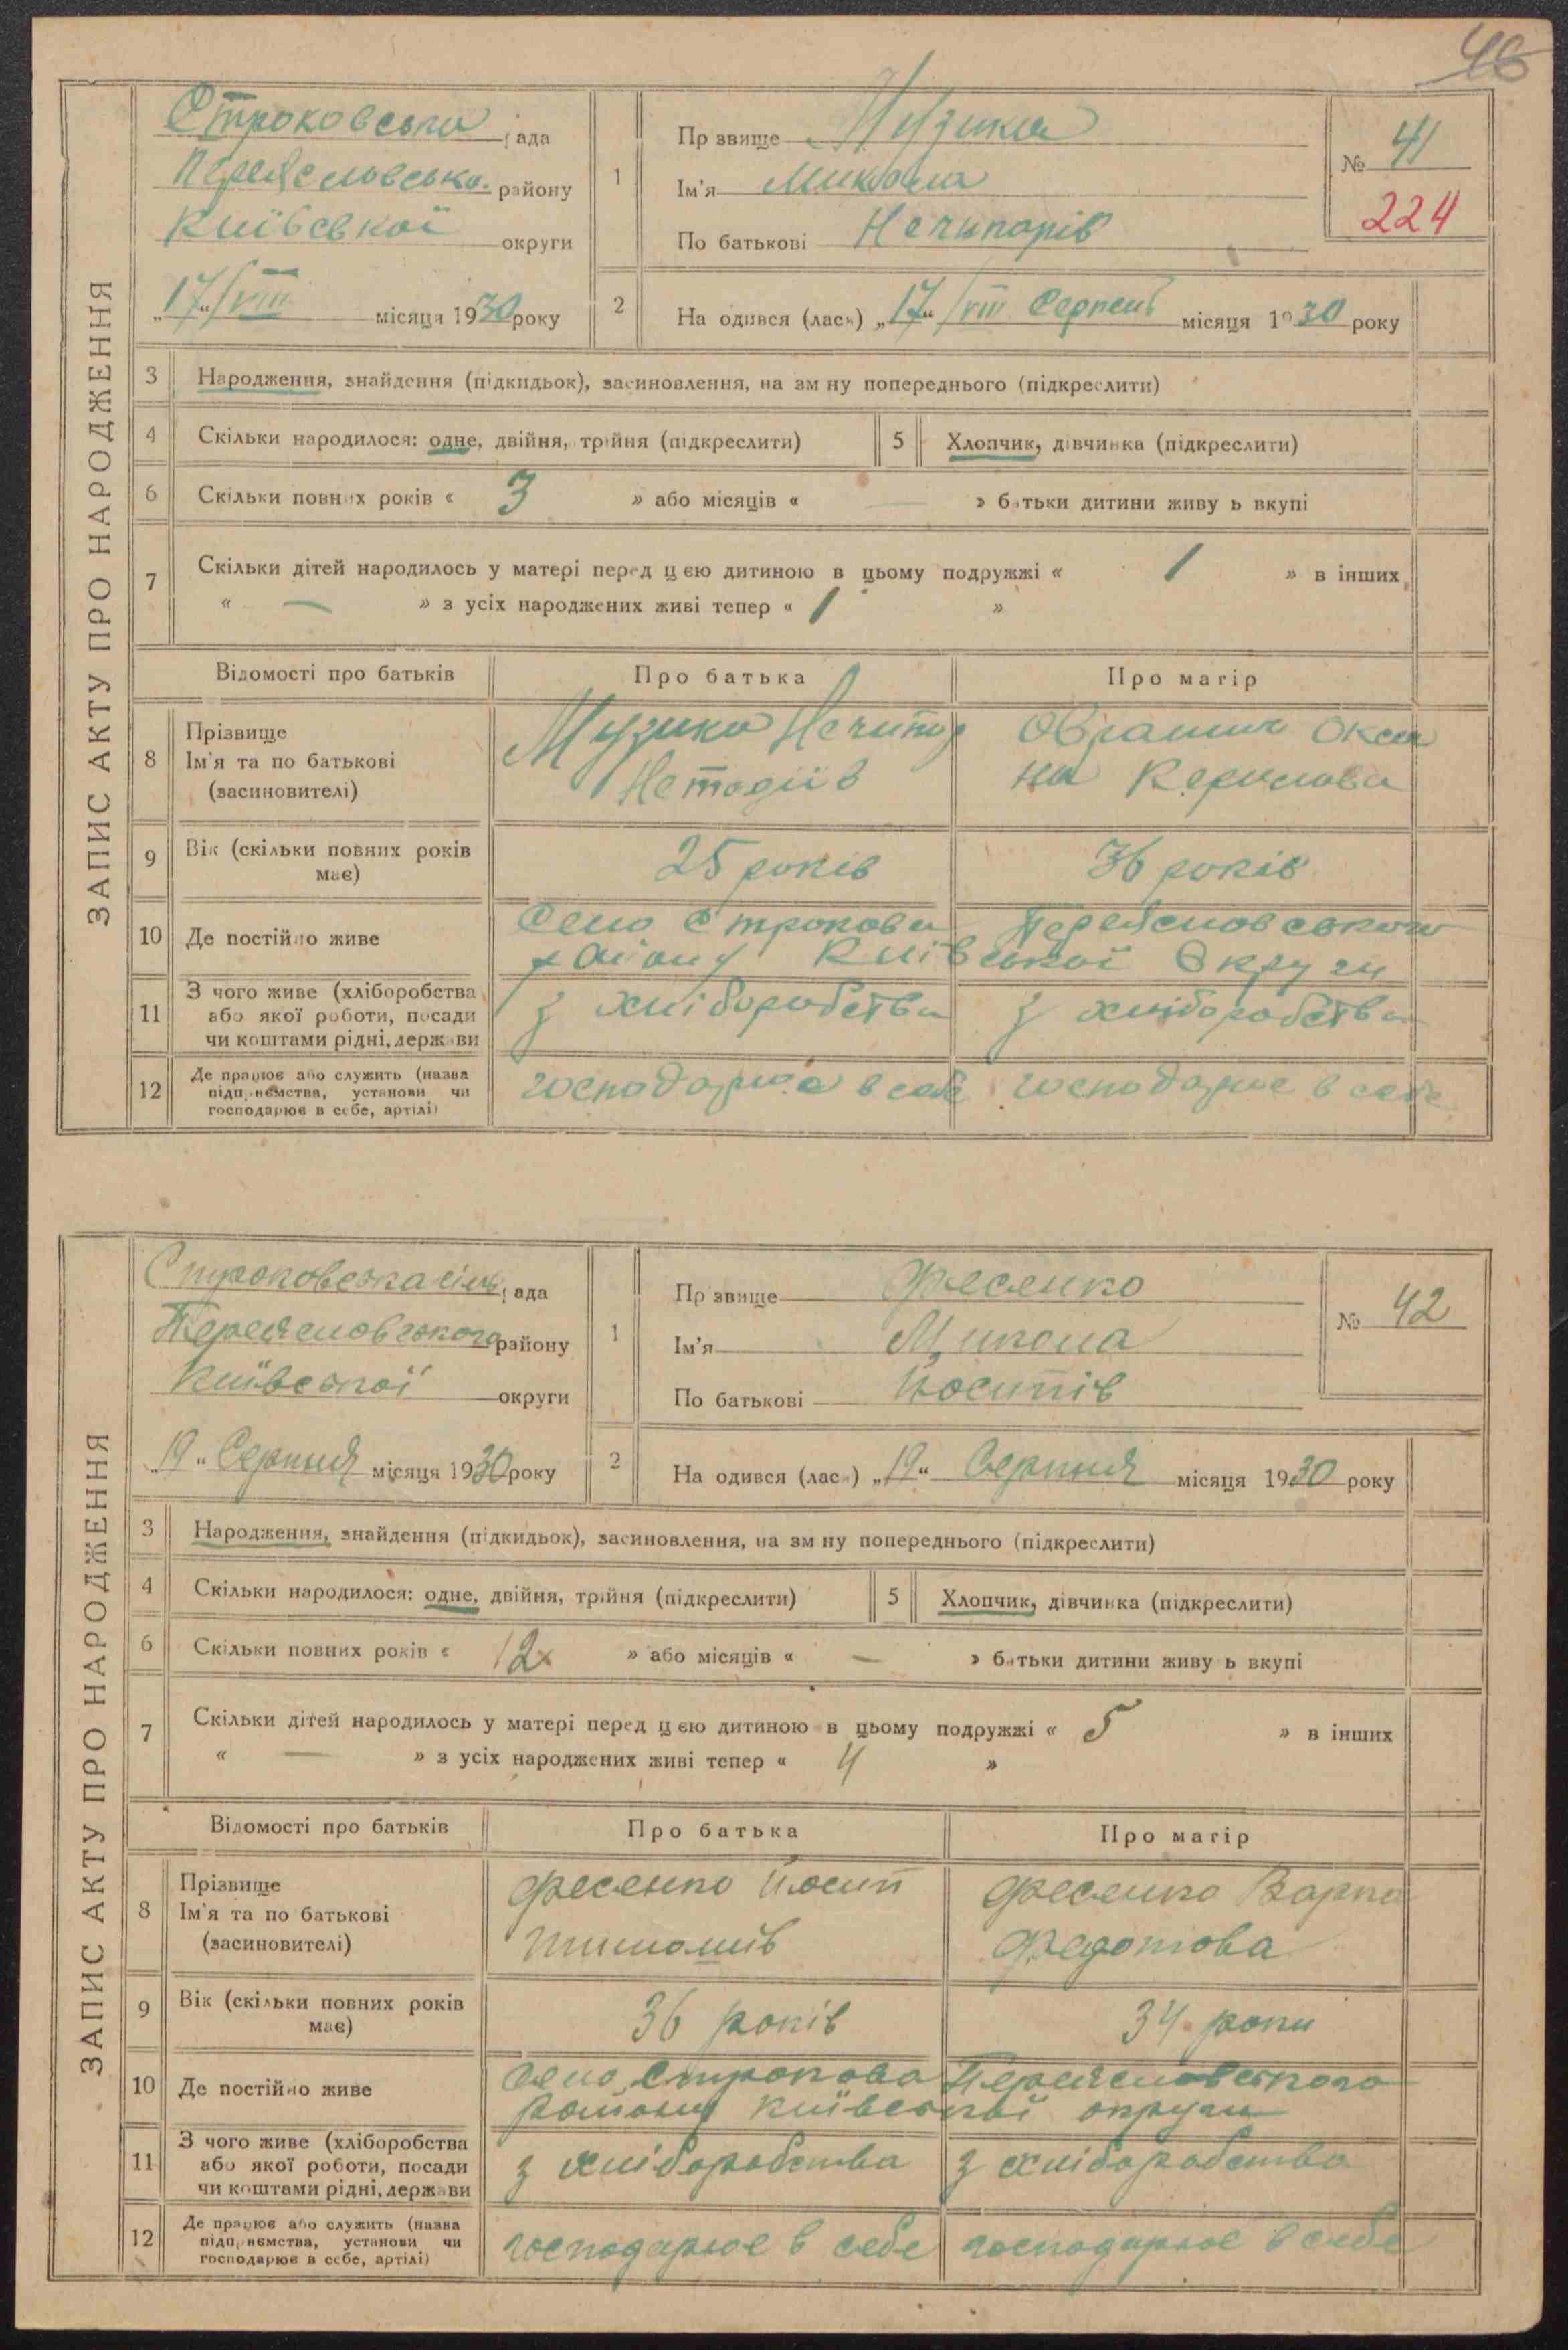 46
ЗАПИС АКТУ ПРО НАРОДЖЕННЯ
Строковська рада
Переясловська. району
Київської округи
„17“/VIII місяця 1930 року
1
Прізвище Музика
Ім'я Микола
По батькові Нечипорів
№ 41
224
2
Народився (лась) „17“/VIII Серпень місяця 1930 року
3 Народження, знайдення (підкидьок), засиновлення, на зміну попереднього (підкреслити)
4 Скільки народилося: одне, двійня, трійня (підкреслити)
5 Хлопчик, дівчинка (підкреслити)
6 Скільки повних років « 3 » або місяців « — » батьки дитини живуть вкупі
7 Скільки дітей народилось у матері перед цією дитиною в цьому подружжі « 1 » в інших
« — » з усіх народжених живі тепер « 1 »
Відомості про батьків Про батька Про матір
8 Прізвище
Ім'я та по батькові
(засиновителі)
Музика Нечипор
Окса
на
9 Вік (скільки повних років
має)
25 років 36 років
10 Де постійно живе
Село Строкова Переясловського
району Київської Округи
11 З чого живе (хліборобства
або якої роботи, посади
чи коштами рідні, держави
з хліборобства з хліборобства
12 Де працює або служить (назва
підприємства, установи чи
господарює в себе, артілі)
господарює в себе господарює в себе
ЗАПИС АКТУ ПРО НАРОДЖЕННЯ
Строковська сіль рада
Переясловського району
Київської округи
„19“ Серпня місяця 1930 року
1
Прізвище Фесенко
Ім'я Микола
По батькові Йосипів
№ 42
2
Народився (лась) „19“ Серпня місяця 1930 року
3 Народження, знайдення (підкидьок), засиновлення, на зміну попереднього (підкреслити)
4 Скільки народилося: одне, двійня, трійня (підкреслити)
5 Хлопчик, дівчинка (підкреслити)
6 Скільки повних років « 12 » або місяців « — » батьки дитини живуть вкупі
7 Скільки дітей народилось у матері перед цією дитиною в цьому подружжі « 5 » в інших
« — » з усіх народжених живі тепер « 4 »
Відомості про батьків Про батька Про матір
8 Прізвище
Ім'я та по батькові
(засиновителі)
Фесенко Йосип
Фесенко Варка
Федотова
9 Вік (скільки повних років
має)
36 років 34 роки
10 Де постійно живе
Село Строкова Переясловського
району Київської округи
11 З чого живе (хліборобства
або якої роботи, посади
чи коштами рідні, держави
з хліборобства з хліборобства
12 Де працює або служить (назва
підприємства, установи чи
господарює в себе, артілі)
господарює в себе господарює в себе